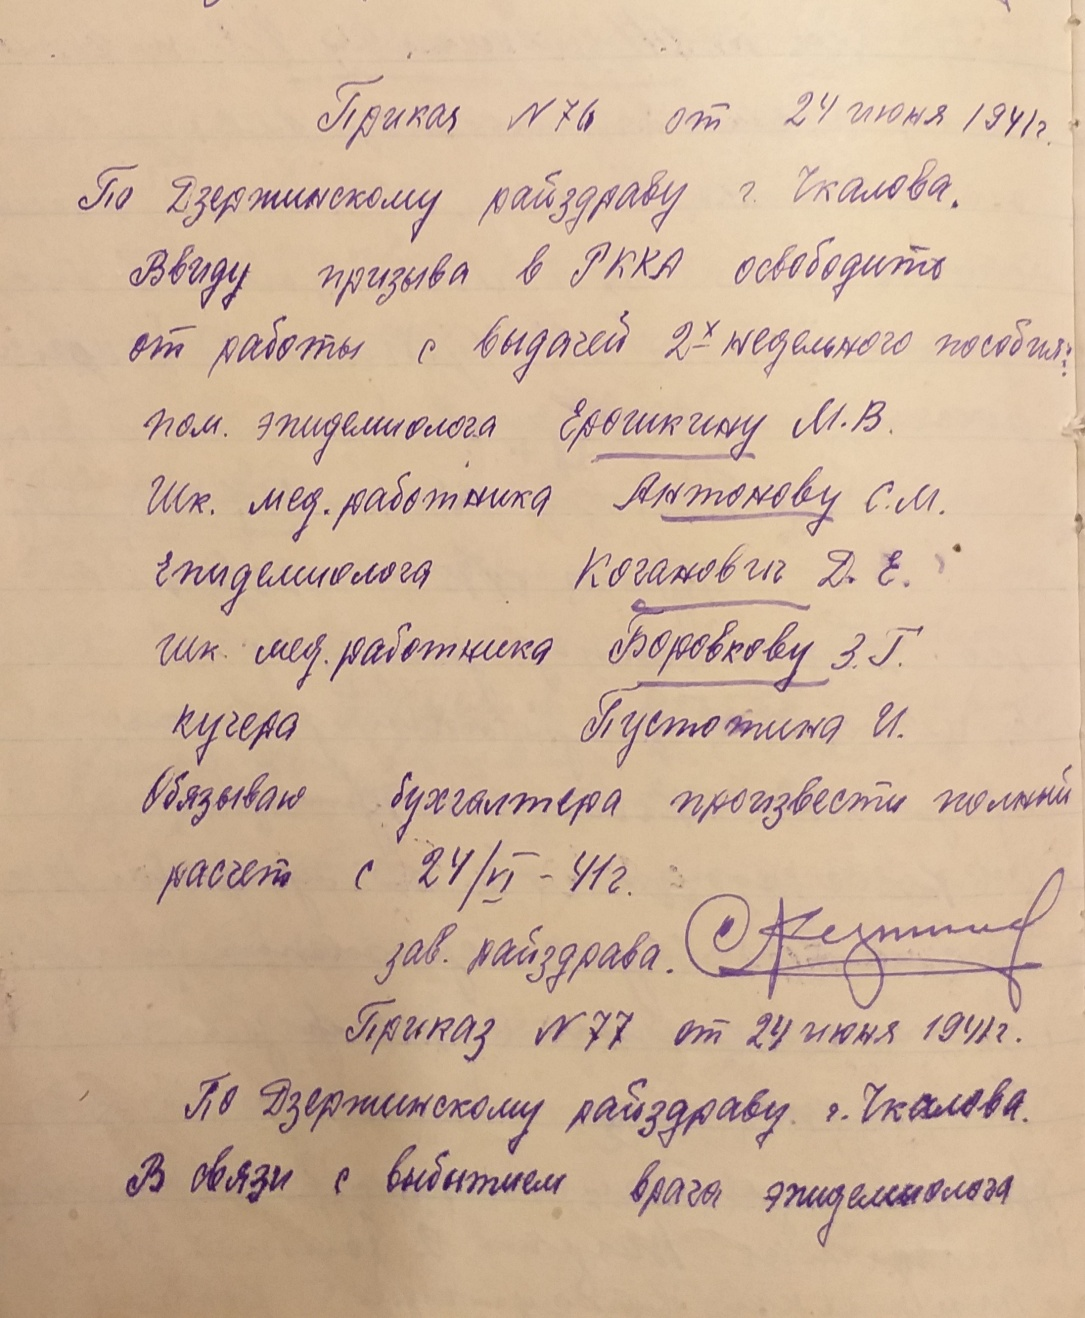 Приказ N 76 от 24 июня 1941г.
По Дзержинскому райздраву г. Чкалова.
Ввиду призыва в РККА освободить
от работы с выдачей 2х недельного пособия:
пом. эпидемиолога Ерошкину М.В.
Шк. мед. работника Антонову С.М.
Епидемиолога Коганович Д.Е.
Шк. мед. работника Боровкову З.Г.
кучера Пустотина И.
Обязываю бухгалтера произвести полный
расчет с 24/VI - 41г.
зав. райздрава.
Приказ N 77 от 24 июня 1941г.
По Дзержинскому райздраву г. Чкалова.
В связи с выбытием врача эпидемиолога